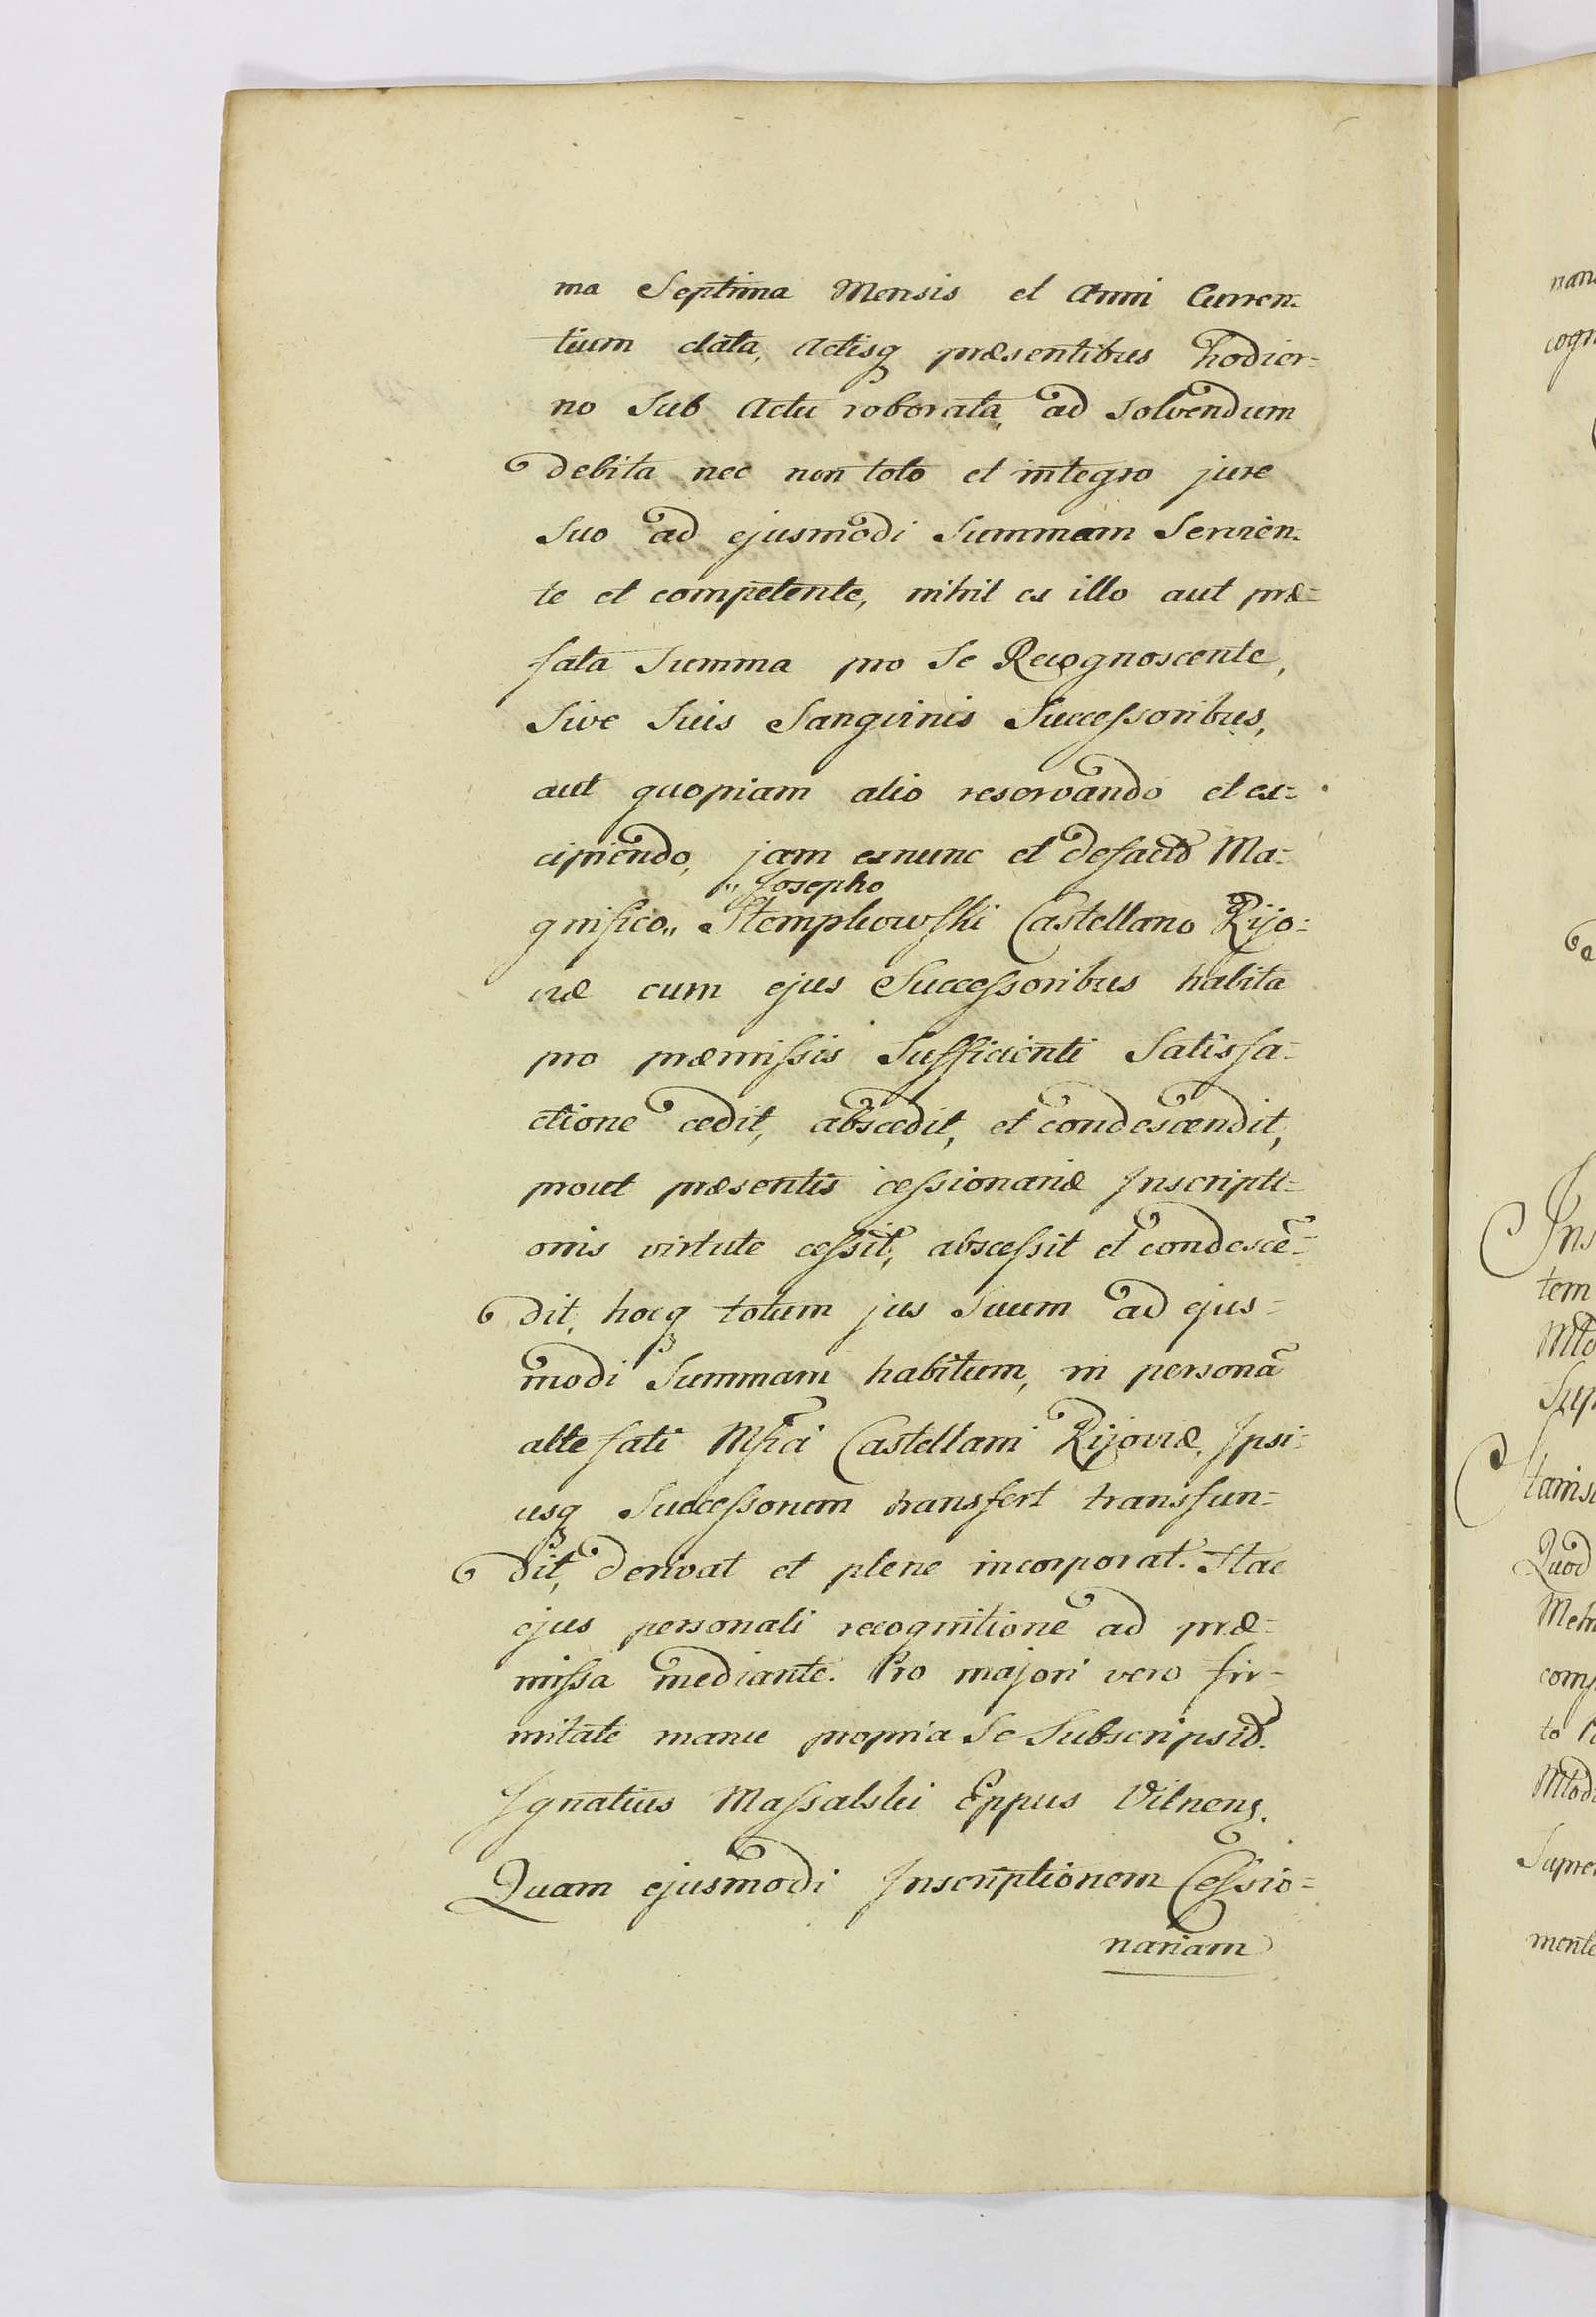 ma Septima Mensis et Anni Curren=
tium data, Actisq3 præsentibus hodier=
no Sub Actu roborata, ad Solvendum
debita nec non toto et integro jure
Suo ad ejusmodi Summam Servien=
te et competente, nihil ex illo aut præ=
fata Summa pro Se Recognoscente,
Sive Suis Sangvinis Successoribus,
aut quopiam alio reservando et ex=
cipiendo, jam exnunc et defacto Ma=
"Josepho
gnifico,, Stempkowski Castellano Kijo=
viæ cum ejus Successoribus habita
pro præmissis Sufficienti Satisfa=
ctione cedit, abscedit, et condescendit,
prout præsentis cessionariæ Inscripti=
onis virtute cessit, abscessit et condescē=
dit, hocq3 totum jus Suum ad ejus=
modi Summam habitum, in personā
alte fati Mfici Castellani Kijoviæ, Ipsi=
usq3 Successorum transfert transfun=
dit, derivat et plene incorporat. Hac
ejus personali recognitione ad præ=
missa mediante. Pro majori vero fir=
mitate manu propria Se Subscripsit.
Ignatius Massalski Eppus Vilnens.
Quam ejusmodi Inscriptionem Cessio=
nariam
cogn
Ins
tem
Sup
Quod
Metr
comp
to
Suprem
mente